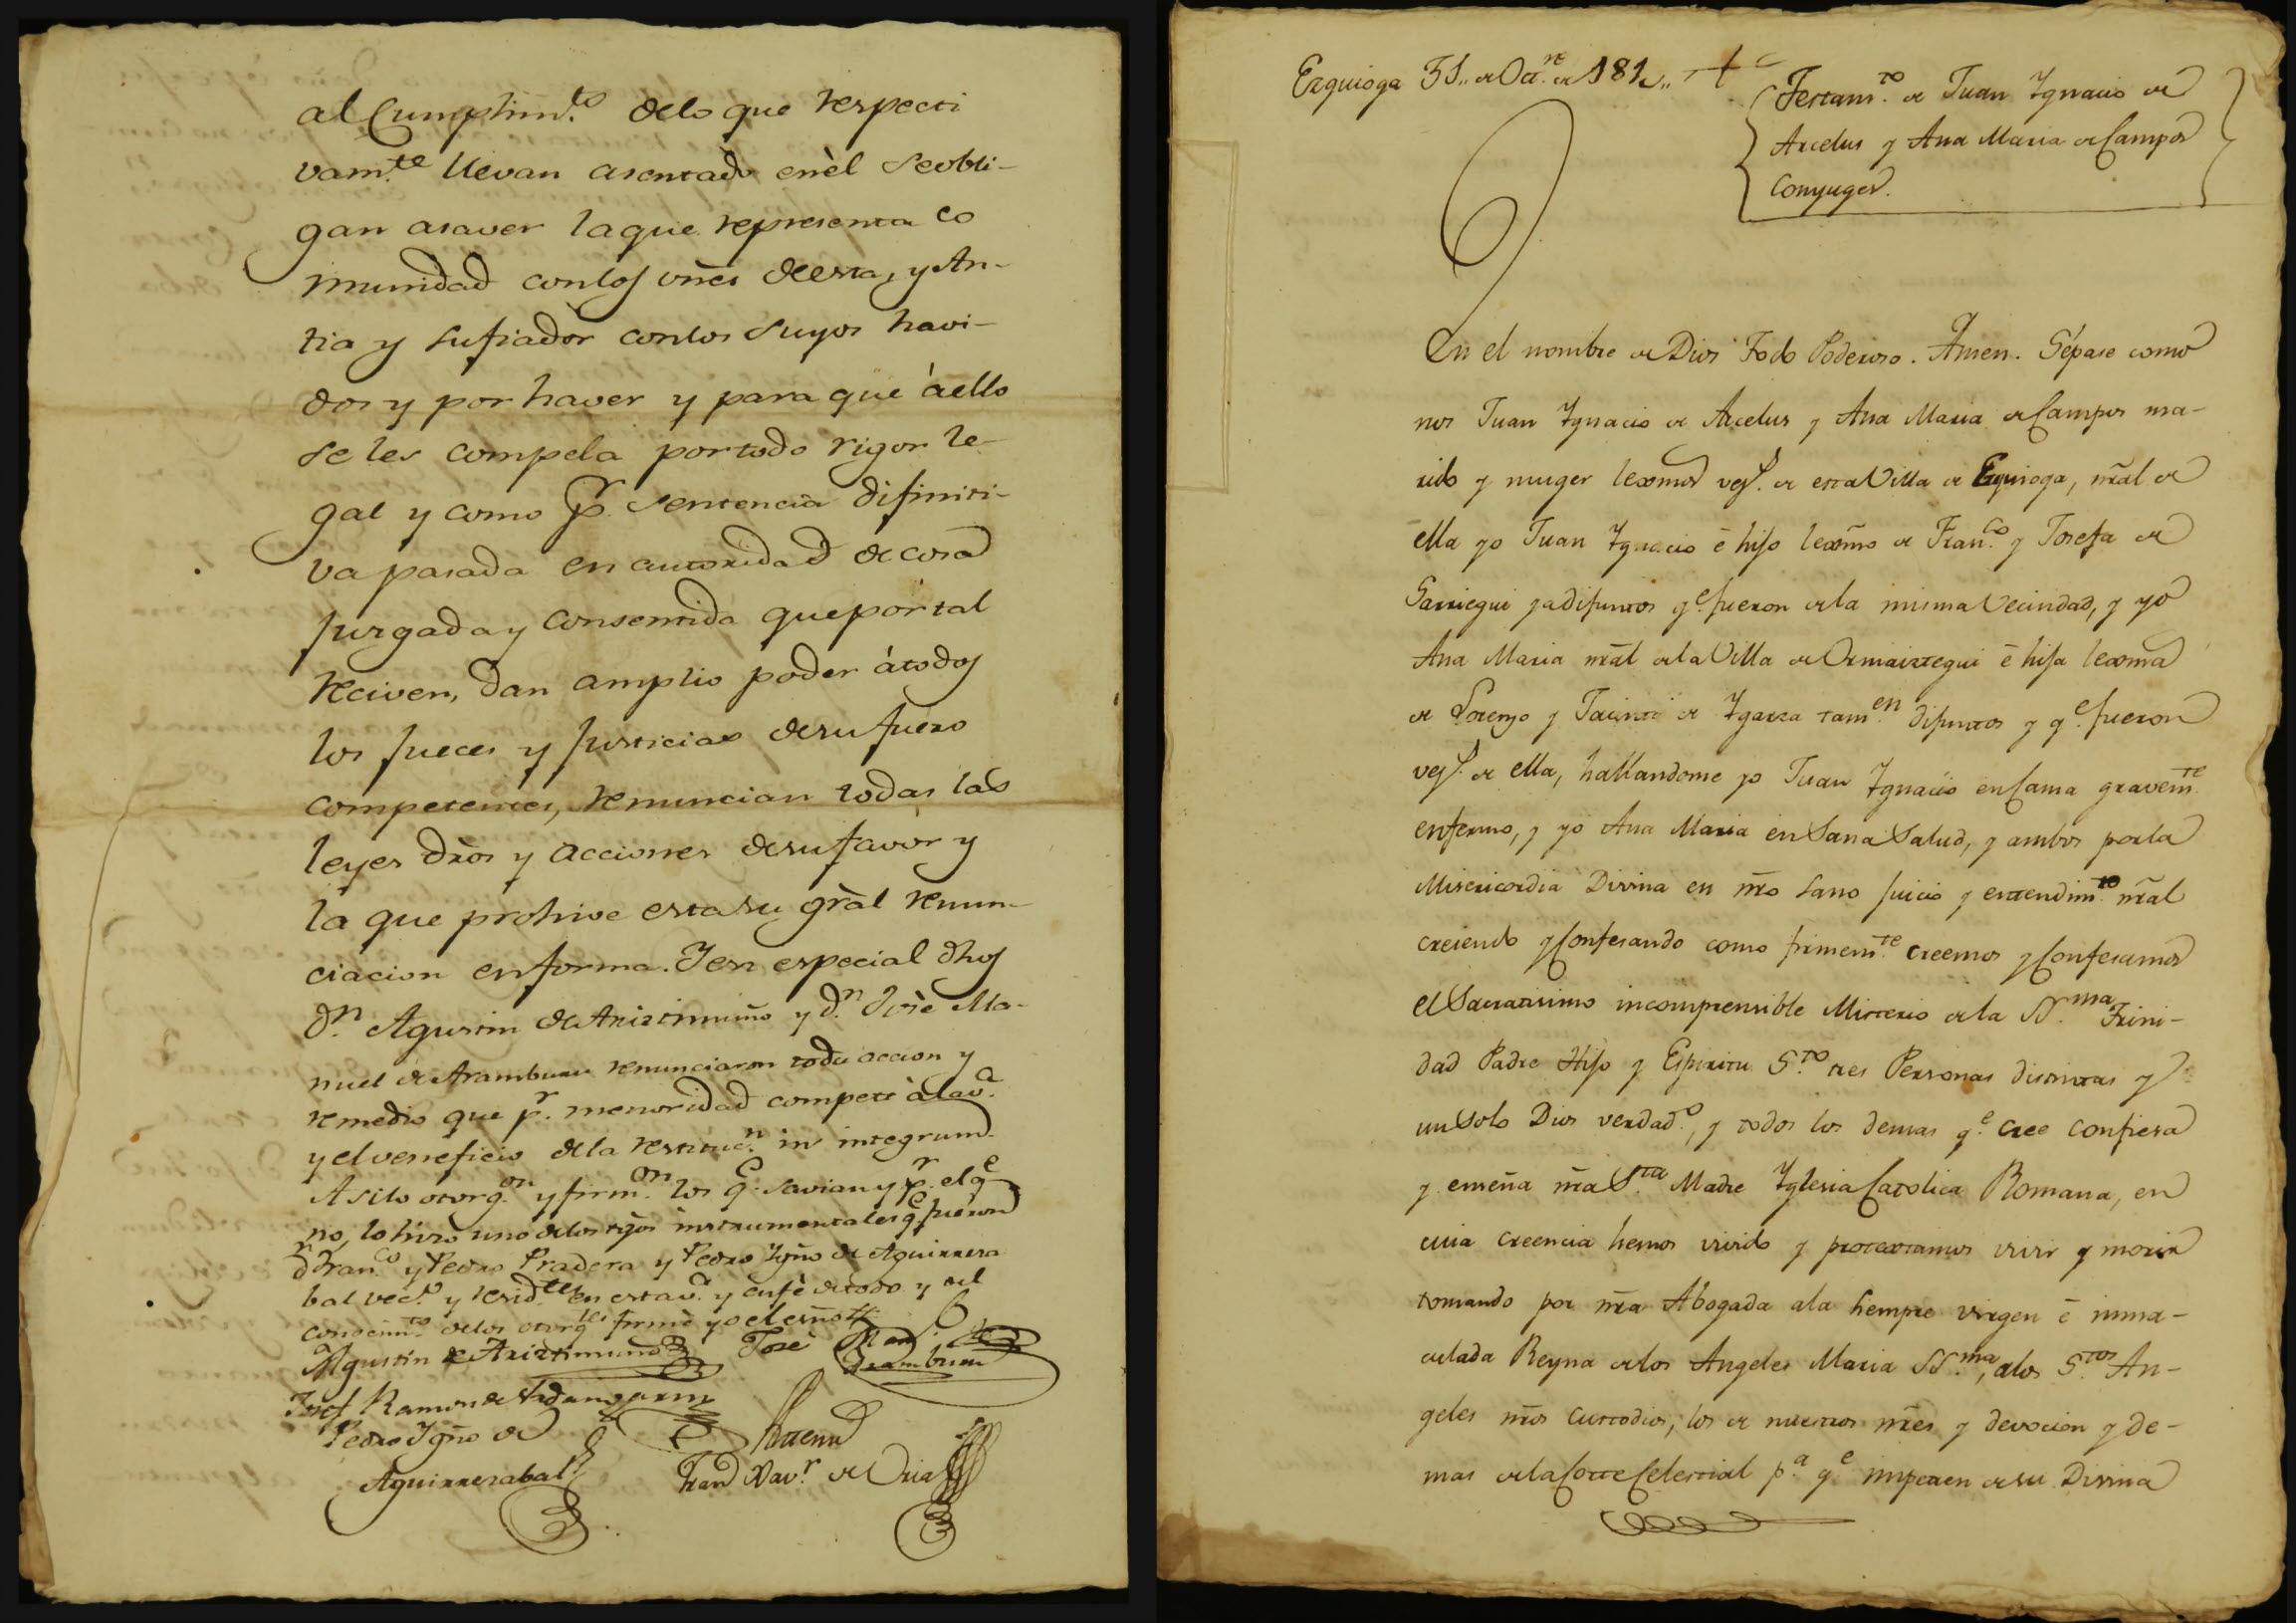 al Cumplim.to delo que respecti
vam.te llevan asentado enèl se obli-
gan asaver la que representa co
munidad con los vnès de esta, y An-
tia y su fiador con los suyos havi-
dos y por haver y para que àello
se les compela por todo rigor le-
gal y como p.r sentencia difiniti-
va pasada en autoridad de cosa
juzgada y consentida que por tal
reciven, dan amplio poder àtodos
los jueces y justicias de su fuero
competentes, renuncian todas las
leyes dros y acciones de su favòr y
la que prohive esta su gràl renun-
ciacion en forma. Y en especial dhos
D.n Agustin de Ariztimuño y d.n Josè Ma-
nuel de Aramburu renunciaron toda accion y
remedio que p.r menoridad compete à la v.a
y el veneficio de la restituc.n in integrum.
Asi lo otorg.on y firm.on los q.e savian y p.r el q.e
no, lo hizo uno de los tgos instrumentales q.e fueron
d.n Fran.co y Pedro Pradera y Pedro Ygño de Aguirreza
bal vec.s y resid.tes en esta v.a y enfè de todo y del
conocim.to de los otorg.tes firmè yo el esño
Agustin de Ariztimuño Josè Man.l de
Aramburu
Josef Ramon de
Pedro Ygño de
Aguirrezabal Fran.co Xav.r de Oria
Ezquioga 31,, de Oct.re de 181
Testam.to de Juan Ygnacio de
Arcelus y Ana Maria de Campos
Conyuges.
En el nombre de Dios Todo Poderoso. Amen. Sépase como
nos Juan Ygnacio de Arcelus y Ana Maria de Campos ma-
rido y muger lexmos vez.s de esta Villa de Ezquioga, nral de
ella yo Juan Ygnacio é hijo lexmo de Fran.co y Josefa de
Sarriegui ya difuntos q.e fueron de la misma Vecindad, y yo
Ana Maria nrál de la Villa de Ormaiztegui é hija lexma
de Lorenzo y Jacinta de Ygarza tam.en difuntos y q.e fueron
vez.s de ella, hallandome yo Juan Ygnacio en Cama gravem.te
enfermo, y yo Ana Maria en Sana Salud, y ambos por la
Misericordia Divina en nro sano juicio y entendim.to nral
creiendo y Confesando como firmem.te creemos y Confesamos
el Sacratisimo incomprensible Misterio de la SS.ma Trini-
dad Padre Hijo y Espiritu S.to tres Personas distintas y
un Solo Dios verdad.o, y todos los demas q.e cree confiesa
y enseña nra S.ta Madre Yglesia Catolica Romana, en
cuia creencia hemos vivido y protextamos vivir y morir
tomando por nra Abogada ala siempre virgen é inma-
culada Reyna de los Angeles Maria SS.ma, alos S.tos An-
geles nros Custodios, los de nuestros nres y devocion y de-
mas de la Corte Celestial p.a q.e impetren de su Divina